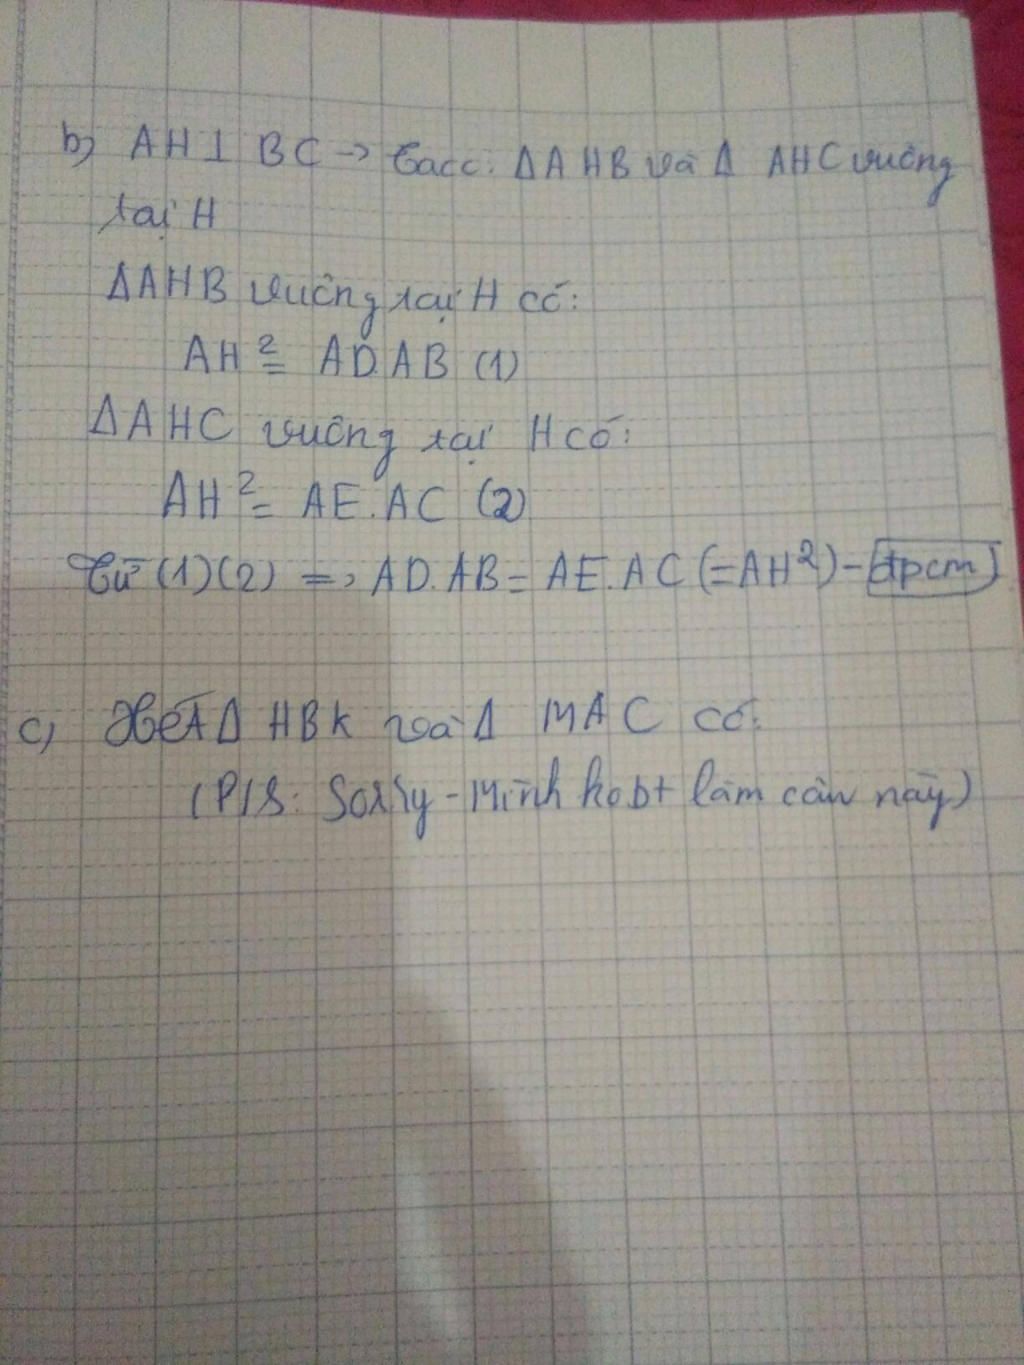 b) AH ⊥ BC → Ta có: ΔAHB và Δ AHC vuông
tại H
ΔAHB vuông tại H có:
AH² = AD.AB (1)
ΔAHC vuông tại H có:
AH² = AE.AC (2)
Từ (1)(2) => AD.AB = AE.AC (=AH²) - đpcm
c) Xét Δ HBK và Δ MAC có:
(P/S: Sorry - Mình ko bt làm câu này)